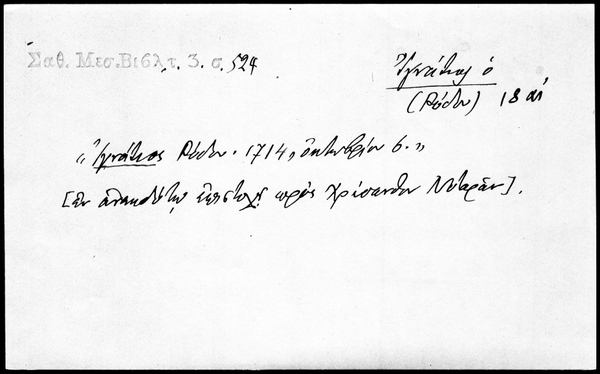 Σαθ. Μεσ.Βιβλτ. 3. σ. 524
Ἰγνάτιος ὁ
(Ρόδου) 18 αἰ
"Ἰγνάτιος Ρόδου. 1714, ὀκτωβρίου 6."
[Ἐν ἀνεκδότῳ ἐπιστολῇ πρὸς Χρύσανθον Νοταρᾶν].